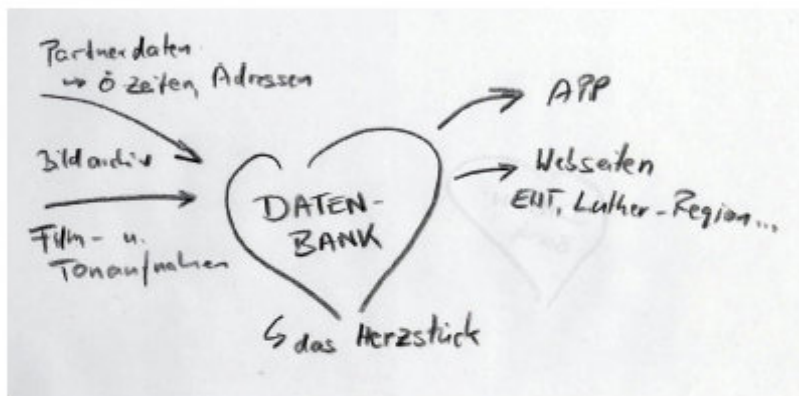 Partnerdaten
↳ Ö zeiten, Adressen
Bildarchiv
Film- u.
Tonaufnahmen
DATEN-
BANK
↳ das Herzstück
APP
Webseiten
EHT, Luther-Region...